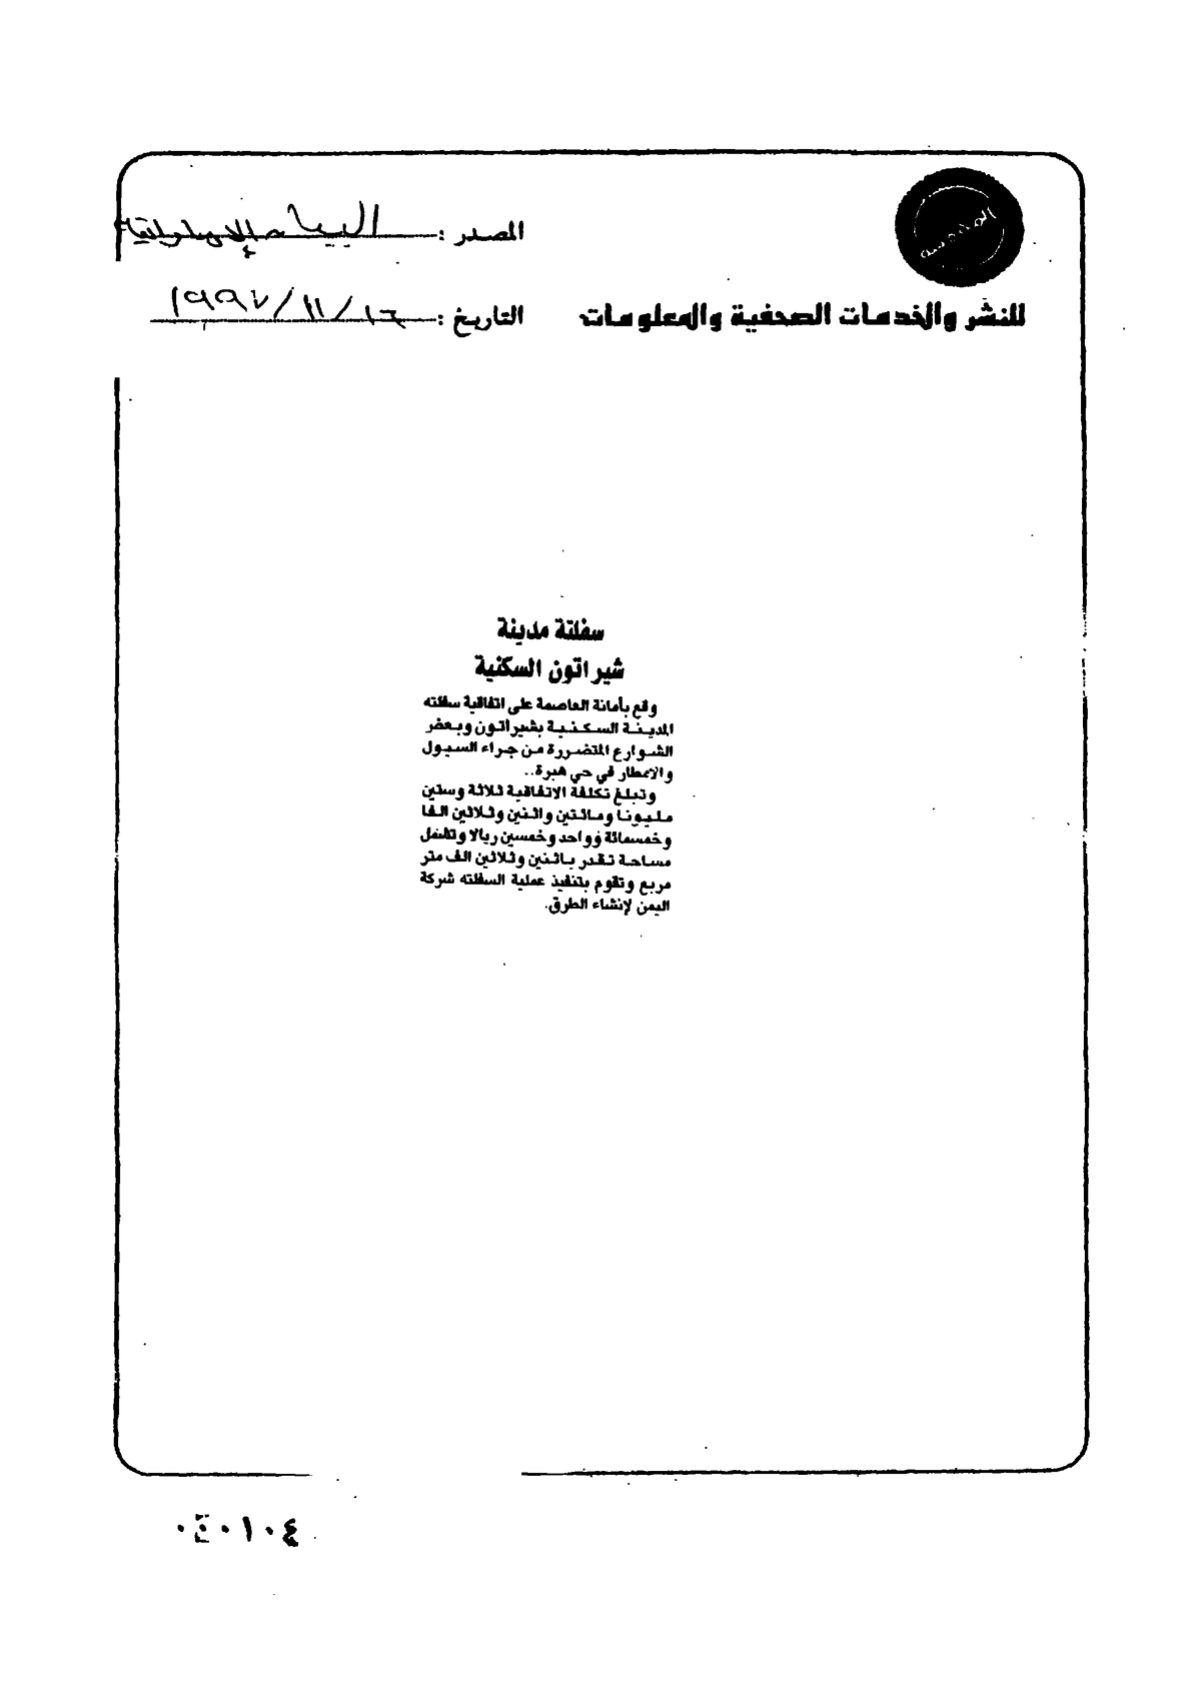 المصدر : البيان الإماراتية
للنشر والخدمات الصحفية والمعلومات التاريخ : ١٩٩٧/١١/١٦
سفلتة مدينة
شيراتون السكنية
وقع بأمانة العاصمة على اتفاقية سفلته
المدينة السكنية بشيراتون وبعض
الشوارع المتضررة من جراء السيول
والامطار في حي هبرة..
وتبلغ تكلفة الاتفاقية ثلاثة وستين
مليونا ومائتين واثنين وثلاثين الفا
وخمسمائة وواحد وخمسين ريالا وتشمل
مساحة تقدر باثنين وثلاثين الف متر
مربع وتقوم بتنفيذ عملية السفلته شركة
اليمن لإنشاء الطرق.